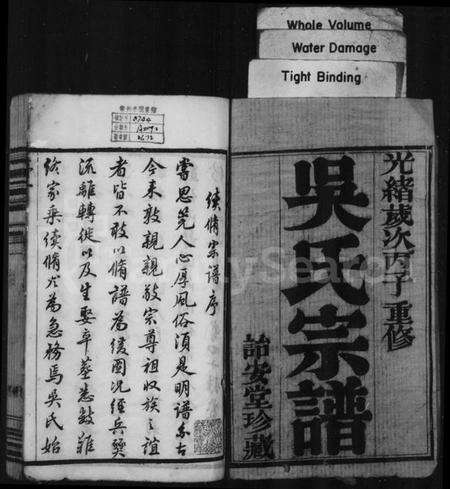 Whole Volume
Water Damage
Tight Binding
光緒歲次丙子重修
吳氏宗譜
詒安堂珍藏
續脩宗譜序
嘗思覓人心厚風俗須是明譜
今來敦親親敬宗尊祖收族之誼
者皆不敢以脩譜為緩圖况經兵燹
流離轉徙以及生娶卒葬志
於家乘續脩尤為急務焉吳氏始
FamilySearch